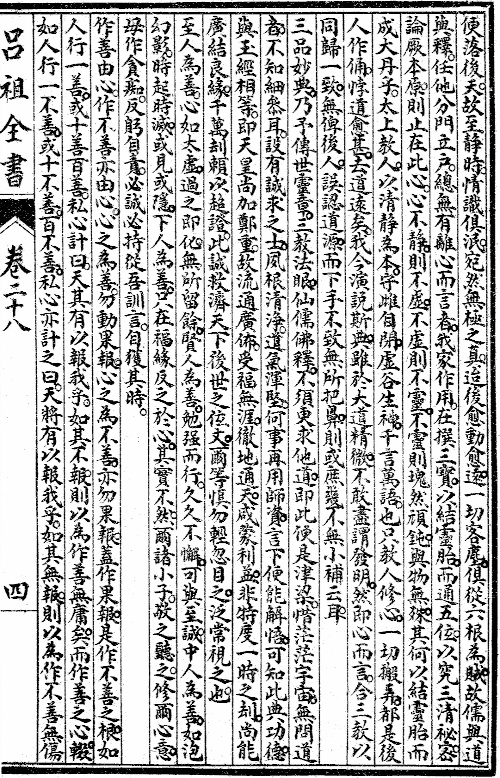 使落後天故至静時情識俱泯宛然無極之真迨後愈動愈遠一切客塵俱從六根為賊故儒與道
與釋任他分門立戸總無有離心而言者我家作用在撰三寶以結靈胎而通五位以究三清秘密
論厥本原則止在此心心不静則不虚不虚則不靈不靈則塊然頑鈍與物無殊其何以結靈胎而
成大丹乎太上教人以清静為本守雌自闢虚谷生神千言萬語也只教人修心一切搬弄都是後
人作俑悖道愈甚去道遠矣我今演説斯典雖於大道精微不敢盡謂發明然即心而言合三教以
同歸一致無俾後人誤認道源而下手不致無所把鼻則或庶幾不無小補云耳
三品妙典乃予傳世靈章三教法眼仙儒佛釋不須更求他道即此便是津梁惜茫茫宇宙無問道
者不知細參耳設有誠求之士夙根清浄道氣渾堅何事再用師資言下便能解悟可知此典功德
與玉經相等即天皇尚加鄭重敬流通廣佈受福無涯徹地通天咸蒙利益非特度一時之刼尚能
廣結良緣千萬刼頼以超證此誠救濟天下後世之位文爾等慎勿輕忽目之泛常視之也
至人為善心如太虚過之即化無所留餘賢人為善勉强而行久久不懈可與至誠中人為善如泡
幻影時起時滅或見或隱下人為善只在福緣反之於心其實不然爾諸小子敬之聽之修爾心意
毋作貪痴反躬自意必誠必持從吾訓言自獲其時
作善由心作不善亦由心心之為善勿動果報心之為不善亦勿果報蓋作果報是作不善之根如
人行一善或十善百善私心計曰天其有以報我乎如其不報則以為作善無庸矣而作善之心輟
如人行一不善或十不善百不善私心亦計之曰天將有以報我乎如其無報則以為作不善無傷
吕祖全書
卷二十八
四